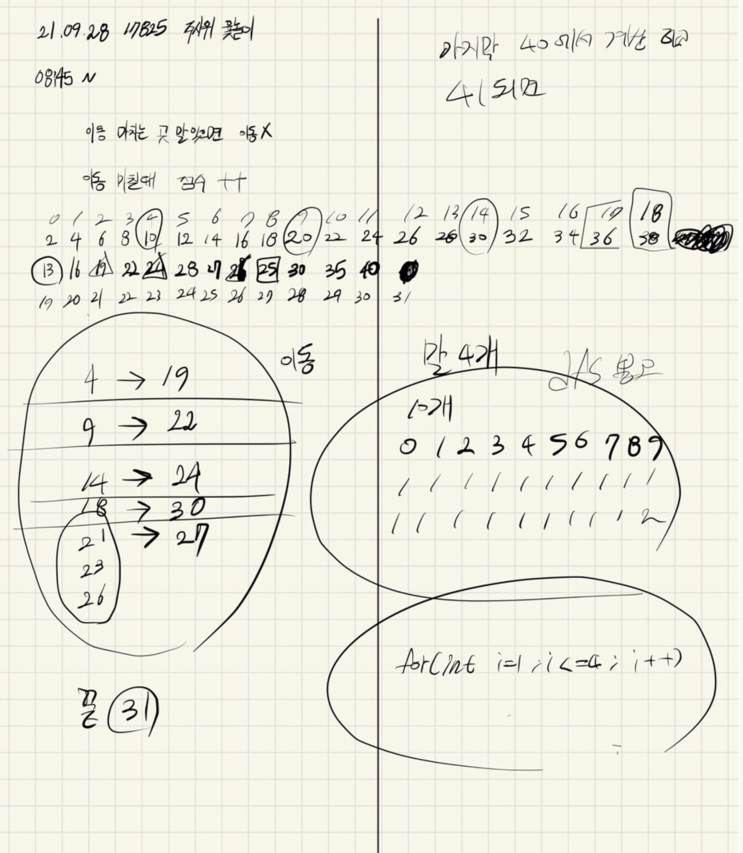 21.09.28 17825 주사위 윷놀이
08:45 N
이동 마치는 곳 말있으면 이동X
이동 마칠때 점수 ++
0 1 2 3 4 5 6 7 8 9 10 11 12 13 14 15 16 17 18
2 4 6 8 10 12 14 16 18 20 22 24 26 28 30 32 34 36 38
13 16 19 22 24 28 27 26 25 30 35 40 0
19 20 21 22 23 24 25 26 27 28 29 30 31
이동
4 → 19
9 → 22
14 → 24
18 → 30
21 → 27
23
26
끝 31
마지막 40에서 계산 하고
41되면
말 4개
dfs
10개
0 1 2 3 4 5 6 7 8 9
1 1 1 1 1 1 1 1 1 1
1 1 1 1 1 1 1 1 1 2
for(int i=1; i<=4; i++)